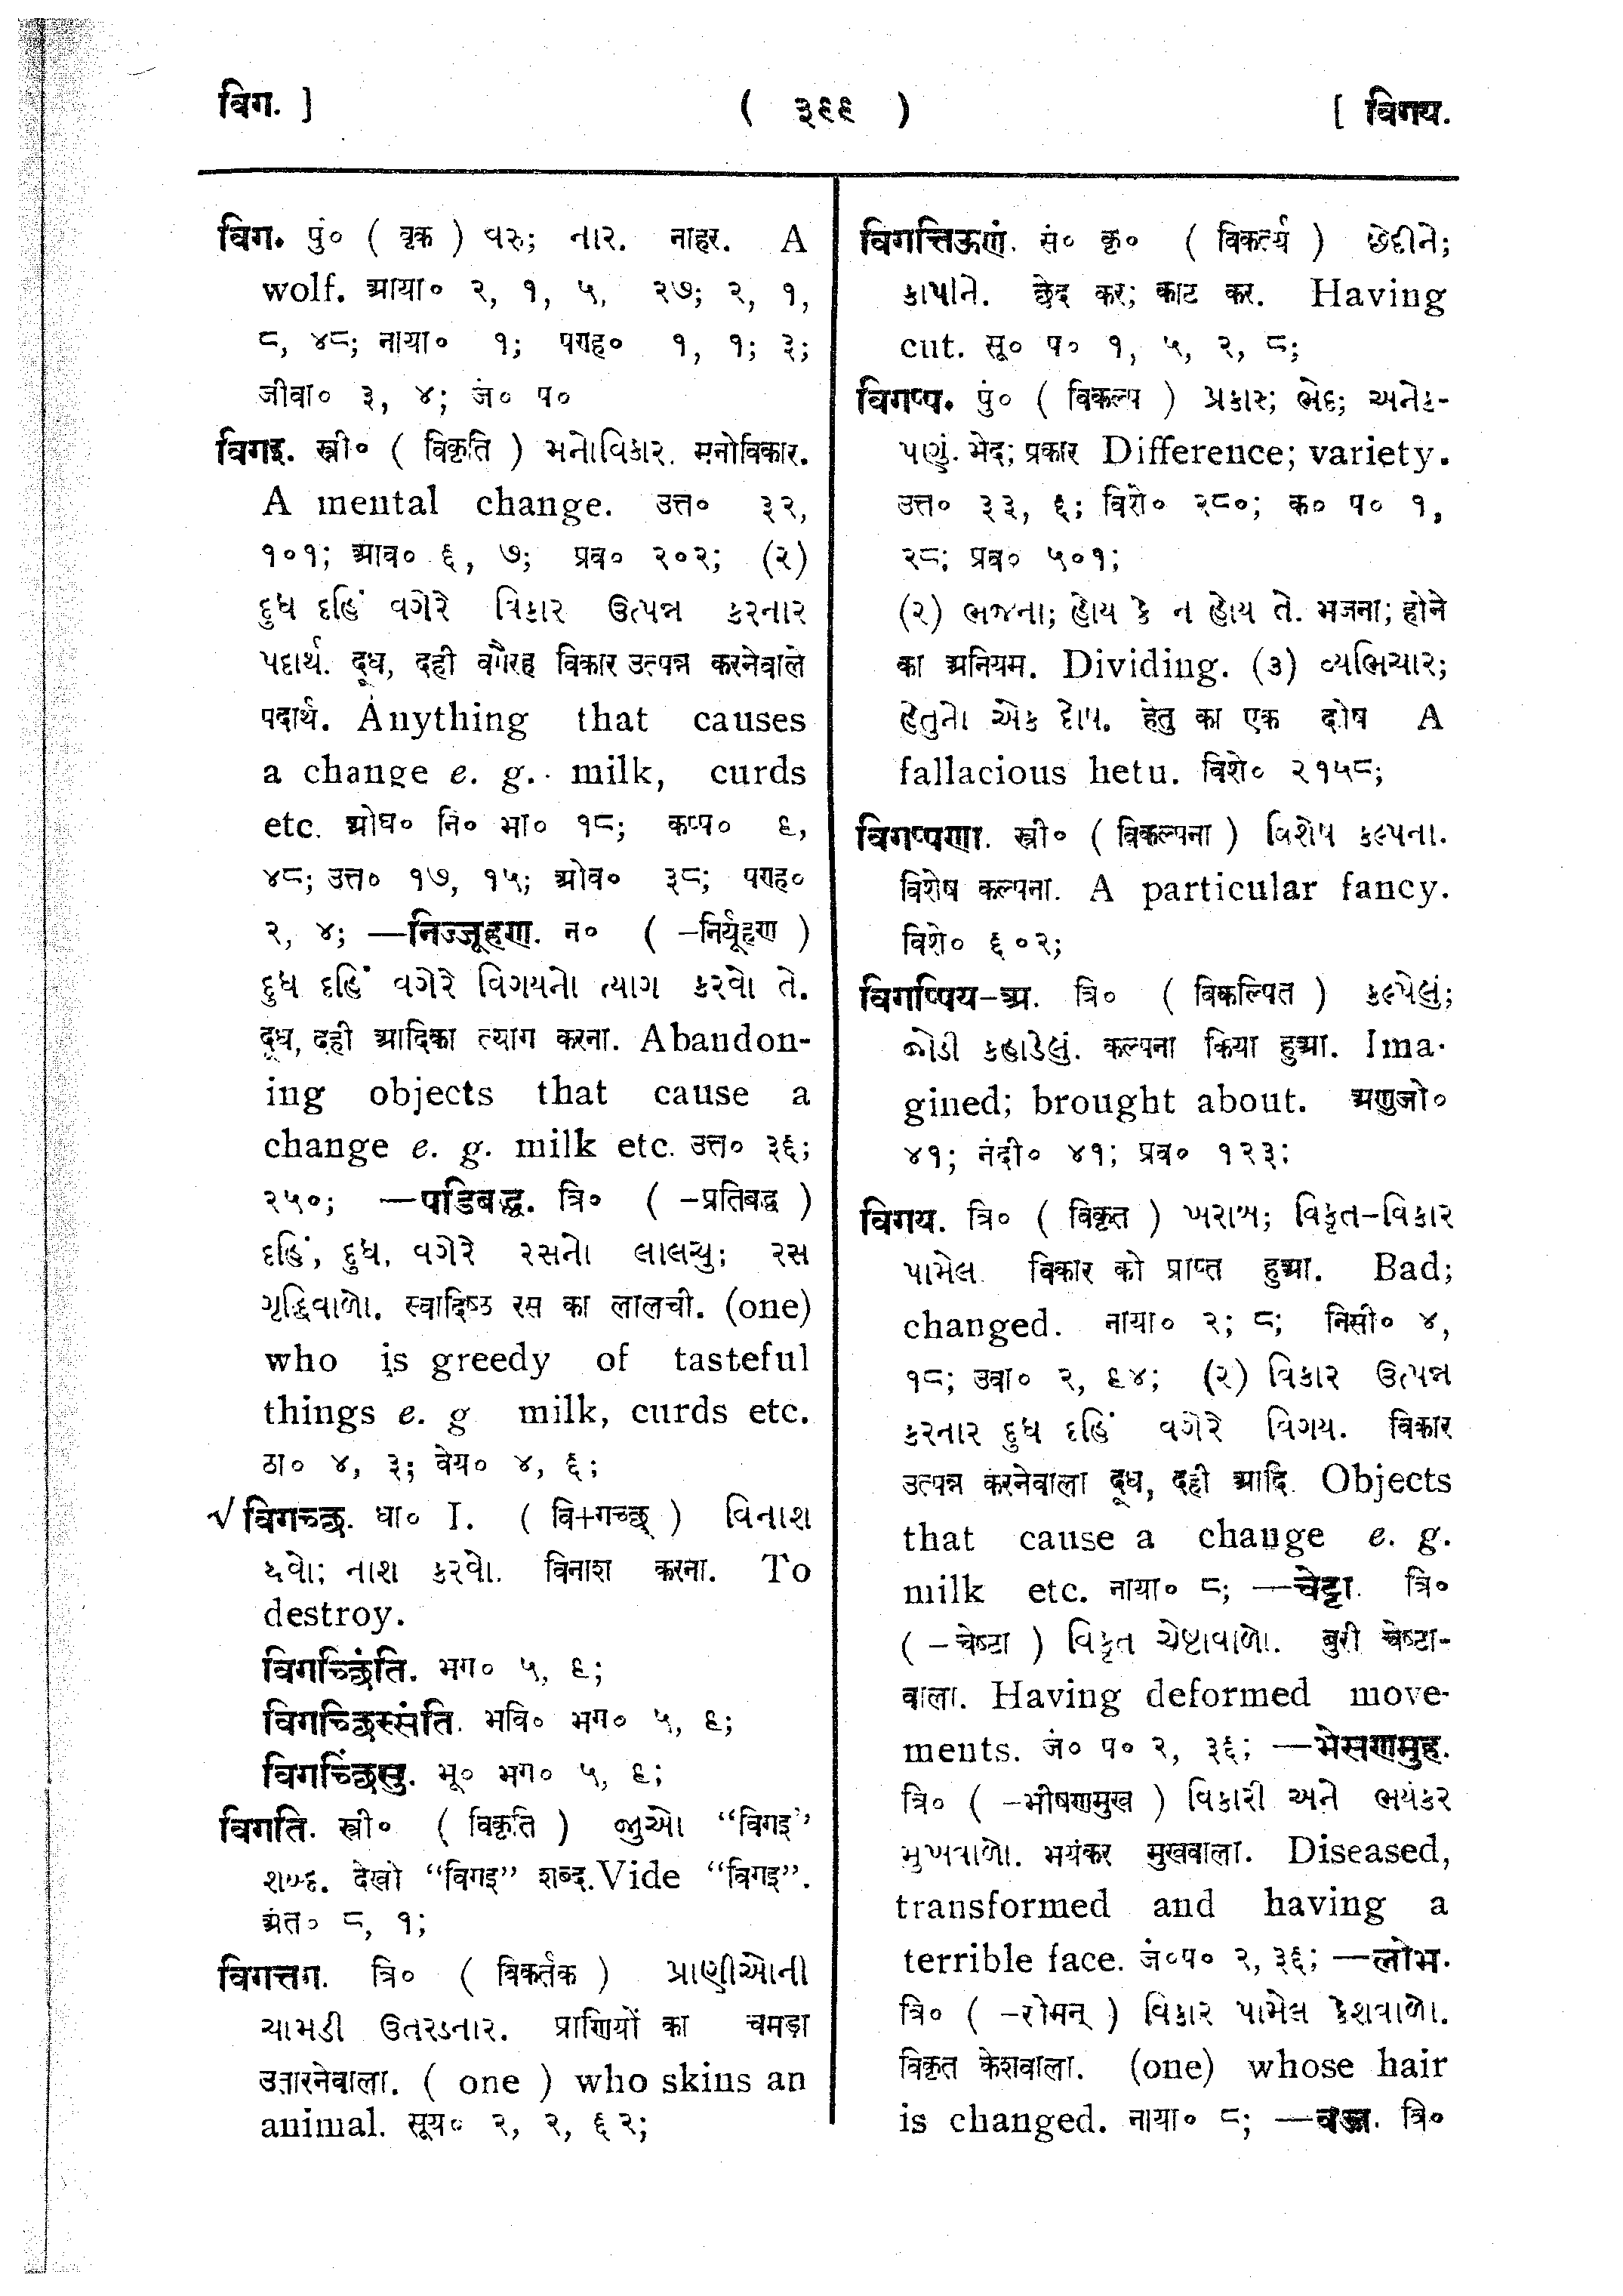 विग. ]
( ३९९ )
[ विगय.
विग. पुं० ( वृक ) વરુ; નાર. नाहर. A
wolf. आया० २, १, ५, २७; २, १,
८, ४८; नाया० १; पण्ह० १, १; ३;
जीवा० ३, ४; जं० प०
विगइ. स्त्री० ( विकृति ) મનોવિકાર. मनोविकार.
A mental change. उत्त० ३२,
१०१; आव० ६, ७; प्रव० २०२; (२)
દુધ દહિં વગેરે વિકાર ઉત્પન્ન કરનાર
પદાર્થ. दूध, दही वगैरह विकार उत्पन्न करनेवाले
पदार्थ. Anything that causes
a change e. g. milk, curds
etc. ओघ० नि० भा० १८; कप्प० ९,
४८; उत्त० १७, १५; ओव० ३८; पण्ह०
२, ४; —निज्जूहण. न० ( -निर्यूहण )
દુધ દહિં વગેરે વિગયનો ત્યાગ કરવો તે.
दूध, दही आदिका त्याग करना. Abandon-
ing objects that cause a
change e. g. milk etc. उत्त० ३६;
२५०; —पडिबद्ध. त्रि० ( -प्रतिबद्ध )
દહિં, દુધ, વગેરે રસનો લાલચુ; રસ
ગૃદ્ધિવાળો. स्वादिष्ठ रस का लालची. (one)
who is greedy of tasteful
things e. g milk, curds etc.
ठा० ४, ३; वेय० ४, ६;
√ विगच्छ. धा० I. ( वि+गच्छ् ) વિનાશ
થવો; નાશ કરવો. विनाश करना. To
destroy.
विगच्छिंति. भग० ५, ९;
विगच्छिस्संति. भवि० भग० ५, ९;
विगच्छिंसु. भू० भग० ५, ९;
विगति. स्त्री० ( विकृति ) જુઓ "विगइ"
શબ્દ. देखो "विगइ" शब्द. Vide "विगइ".
अंत० ८, १;
विगत्तग. त्रि० ( विकर्तक ) પ્રાણીઓની
ચામડી ઉતરડનાર. प्राणियों का चमड़ा
उतारनेवाला. ( one ) who skins an
animal. सूय० २, २, ६२;
विगत्तिऊणं. सं० कृ० ( विकर्त्य ) છેદીને;
કાપીને. छेद कर; काट कर. Having
cut. सू० प० १, ५, २, ८;
विगप्प. पुं० ( विकल्प ) પ્રકાર; ભેદ; અનેક-
પણું. भेद; प्रकार Difference; variety.
उत्त० ३३, ६; विशे० २८०; क० प० १,
२८; प्रव० ५०१;
(२) ભજના; હોય કે ન હોય તે. भजना; होने
का अनियम. Dividing. (३) વ્યભિચાર;
હેતુનો એક દોષ. हेतु का एक दोष A
fallacious hetu. विशे० २१५८;
विगप्पणा. स्त्री० ( विकल्पना ) વિશેષ કલ્પના.
विशेष कल्पना. A particular fancy.
विशे० ६०२;
विगप्पिय-अ. त्रि० ( विकल्पित ) કલ્પેલું;
જોડી કહાડેલું. कल्पना किया हुआ. Ima-
gined; brought about. अणुजो०
४१; नंदी० ४१; प्रव० १२३;
विगय. त्रि० ( विकृत ) ખરાબ; વિકૃત-વિકાર
પામેલ विकार को प्राप्त हुआ. Bad;
changed. नाया० २; ८; निसी० ४,
१८; उवा० २, ९४; (२) વિકાર ઉત્પન્ન
કરનાર દુધ દહિં વગેરે વિગય. विकार
उत्पन्न करनेवाला दूध, दही आदि. Objects
that cause a change e. g.
milk etc. नाया० ८; —चेट्ठा. त्रि०
( -चेष्टा ) વિકૃત ચેષ્ટાવાળો. बुरी चेष्टा-
वाला. Having deformed move-
ments. जं० प० २, ३६; —भेसणमुह.
त्रि० ( -भीषणमुख ) વિકારી અને ભયંકર
મુખવાળો. भयंकर मुखवाला. Diseased,
transformed and having a
terrible face. जं०प० २, ३६; —लोभ.
त्रि० ( -रोमन् ) વિકાર પામેલ કેશવાળો.
विकृत केशवाला. (one) whose hair
is changed. नाया० ८; त्रि०